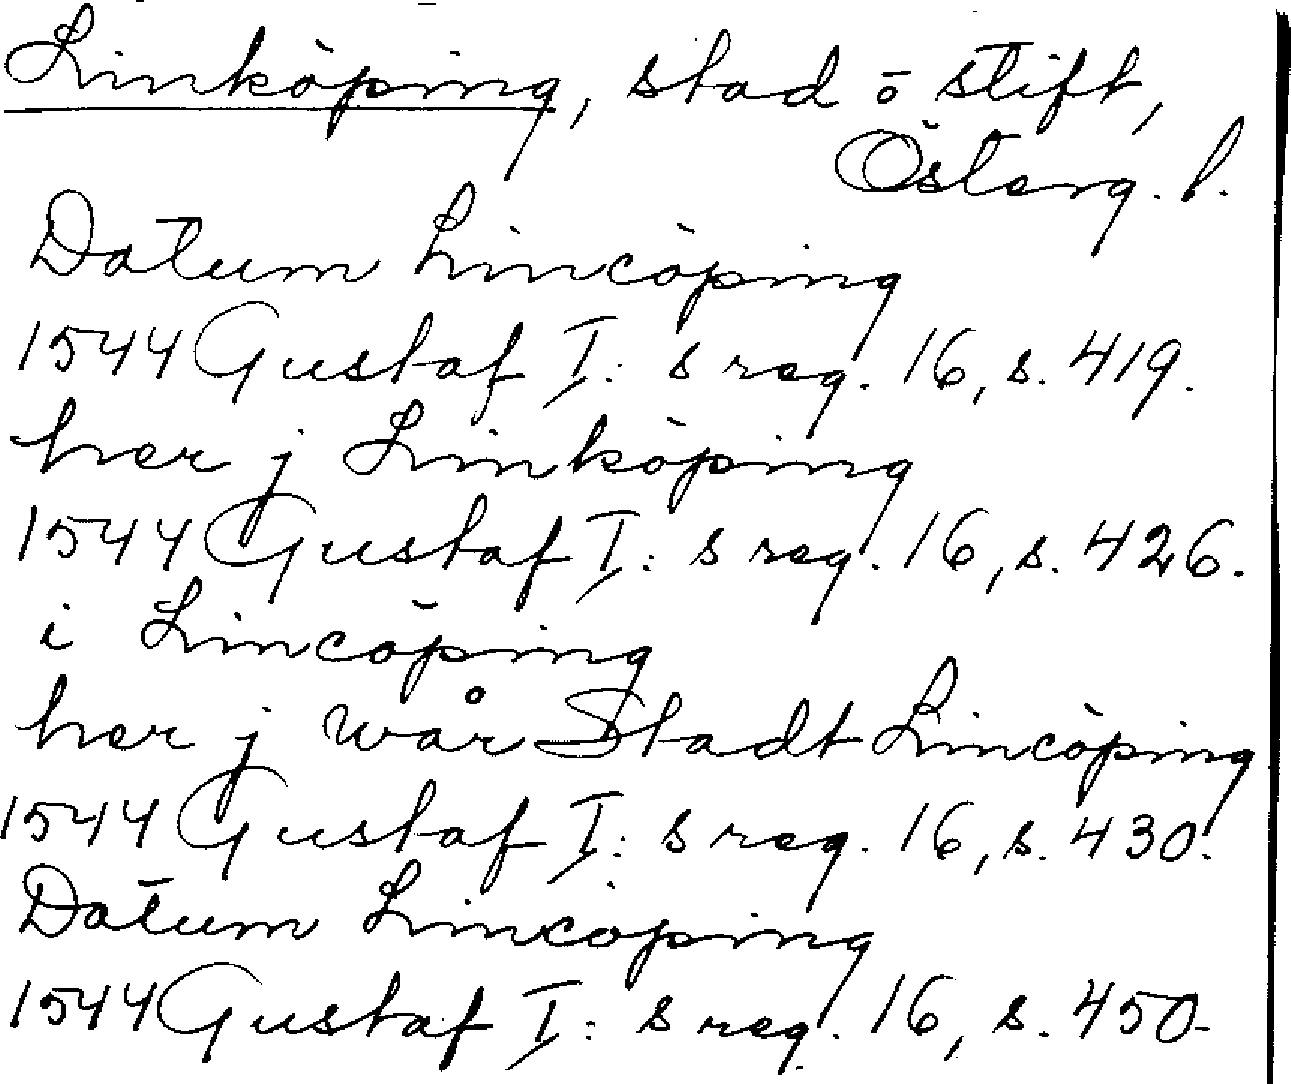 Linköping, stad o stift,
Österg. l.
Datum Lincöping
1544 Gustaf I: s reg. 16, s. 419.
her j Linköping
1544 Gustaf I: s reg. 16, s. 426.
i Lincöping
her j wår Stadt Lincöping
1544 Gustaf I: s reg. 16, s. 430.
Datum Lincöping
1544 Gustaf I: s reg. 16, s. 450.